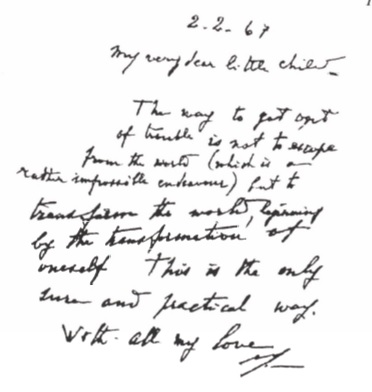 2-2-67
My very dear little child_
The way to get out
of trouble is not to escape
from the world (which is a
rather impossible endeavour) but to
transform the world, beginning
by the transformation of
oneself This is the only
sure and practical way.
With all my love